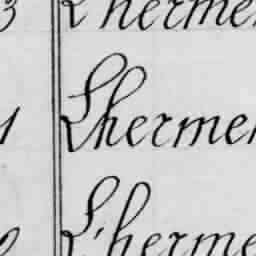 3 L'herme
1 Lherme
L'herme